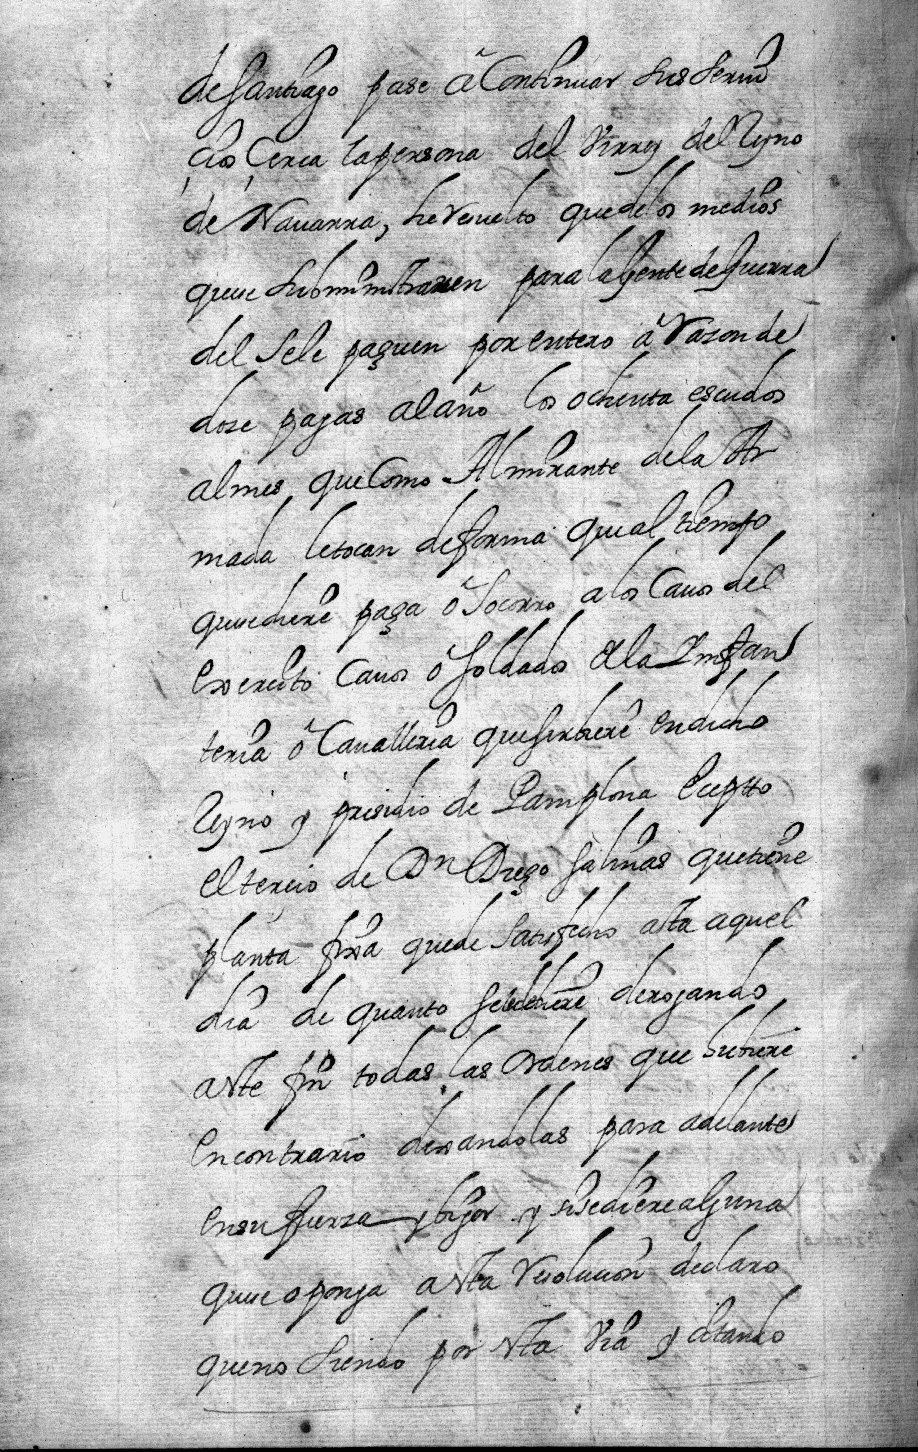 de Santiago pase â Continuar sus servi
çios çerca la persona del Virrey del Reyno
de Navarra, he resuelto que de los medios
que se subministraren para la gente de guerra
del se le paguen por entero â razon de
doze pagas al año los ochenta escudos
al mes que como Almirante de la Ar
mada le tocan de forma que al tiempo
que se diere paga ô socorro a los Cavos del
exercito Cavos ô soldados de la Infan
teria ô Cavalleria que sirbiere en dicho
Reyno y presidio de Pamplona Exceptto
el tercio de Dn Diego Salinas que tiene
planta fixa quede satisfecho asta aquel
dia de quanto se le deviere derogando
a este fin todas las ordenes que hubiere
en contrario dexandolas para adelante
en su fuerza y bigor y si se diere alguna
que se oponga a esta resolucion declaro
que no siendo por esta via y citando